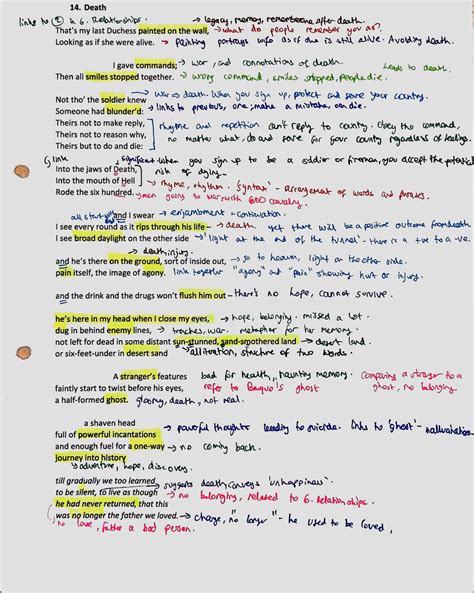 14. Death
links to ① & 6. Relationships. → legacy, memory, remembrance after death.
That's my last Duchess painted on the wall, → what do people remember you as?
Looking as if she were alive. → Painting portrays info as if she is still alive. Avoiding death.
I gave commands; → war, and connotations of death. leads to death.
Then all smiles stopped together. → wrong command, smiles stopped, people die.
Not tho' the soldier knew → war → death. When you sign up, protect and serve your country.
Someone had blunder'd: → links to previous, one make a mistake, can die.
Theirs not to make reply,
Theirs not to reason why, rhyme and repetition can't reply to country. Obey the command,
Theirs but to do and die: no matter what, do and serve for your country regardless of feelings
link significant when you sign up to be a soldier or fireman, you accept the potential
Into the jaws of Death, risk of dying.
Into the mouth of Hell → rhyme, rhythm. 'Syntax' - arrangement of words and phrases.
Rode the six hundred. men going to war with 600 cavalry
all start with and I swear → enjambment - continuation
I see every round as it rips through his life – → death, yet there will be a positive outcome from death
I see broad daylight on the other side → 'light at the end of the tunnel' - there is a +ve to a -ve.
→ death, injury.
and he's there on the ground, sort of inside out, → go to heaven, light on the other side.
pain itself, the image of agony. link together "agony" and "pain" showing hurt or injury.
and the drink and the drugs won't flush him out – there's no hope, cannot survive.
he's here in my head when I close my eyes, → hope, belonging, missed a lot.
dug in behind enemy lines, → trenches, war. metaphor for her memory.
not left for dead in some distant sun-stunned, sand-smothered land → desert land
or six-feet-under in desert sand → alliteration, structure of two words.
A stranger's features bad for health, haunting memory. comparing a stranger to a
faintly start to twist before his eyes, refer to Banquo's ghost ghost, no belonging.
a half-formed ghost. gloomy, death, not real.
a shaven head
full of powerful incantations → powerful thoughts leading to suicide. links to 'ghost' - hallucination
and enough fuel for a one-way → no coming back.
journey into history
→ adventure, hope, discovery.
till gradually we too learned → suggests death conveys 'unhappiness'
to be silent, to live as though → no belonging, related to 6. Relationships.
he had never returned, that this
was no longer the father we loved. → change, "no longer" - he used to be loved,
no love, father a bad person.